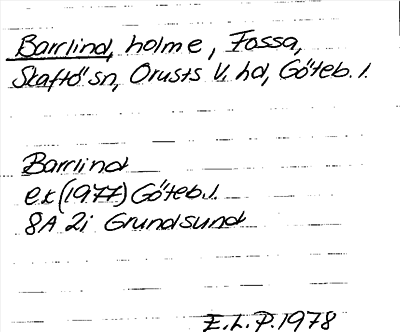 Barrlind, holme, Fossa,
Skaftö sn, Orusts V. hd, Göteb. l.
Barrlind
ek (1977) Göteb. l.
8A 2i Grundsund
E.L.P. 1978